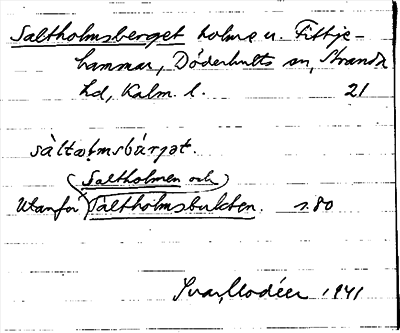 Saltholmsberget holme u. Fittje-
hammar, Döderhults sn, Stranda
hd, Kalm. l. 21
sàltəłmsbárjət.
(Saltholmen och)
Utanför Saltholmsbukten. s. 80
Ivar Modéer 1941